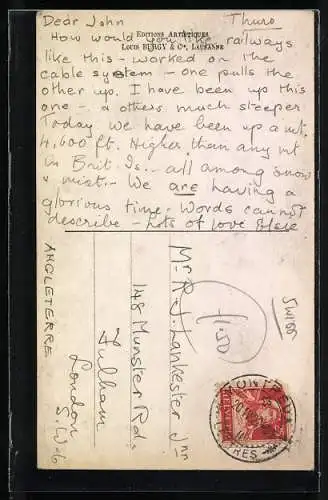 Dear John Thurs
EDITIONS ARTISTIQUES
LOUIS BURGY & Co., LAUSANNE
How would you like railways
like this - worked on the
cable system - one pulls the
other up. I have been up this
one - & others much steeper
Today we have been up a mt.
4,600 ft. Higher than any mt
in Brit. Is. - all among snow
& mist. - We are having a
glorious time. Words cannot
describe - Lots of love Elsie
Mr R. J. Lankester Jnr
148 Munster Rd,
Fulham
London
S.W.6
ANGLETERRE
SWISS
1.50
MONTREUX
HELVETIA